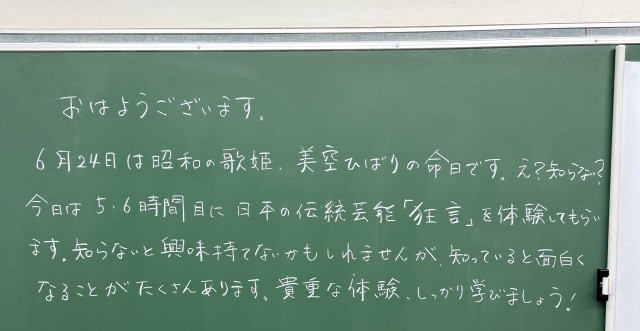 おはようございます。
6月24日は昭和の歌姫、美空ひばりの命日です。え?知らない?
今日は5・6時間目に日本の伝統芸能「狂言」を体験してもらい
ます。知らないと興味持てないかもしれませんが、知っていると面白く
なることがたくさんあります。貴重な体験、しっかり学びましょう!